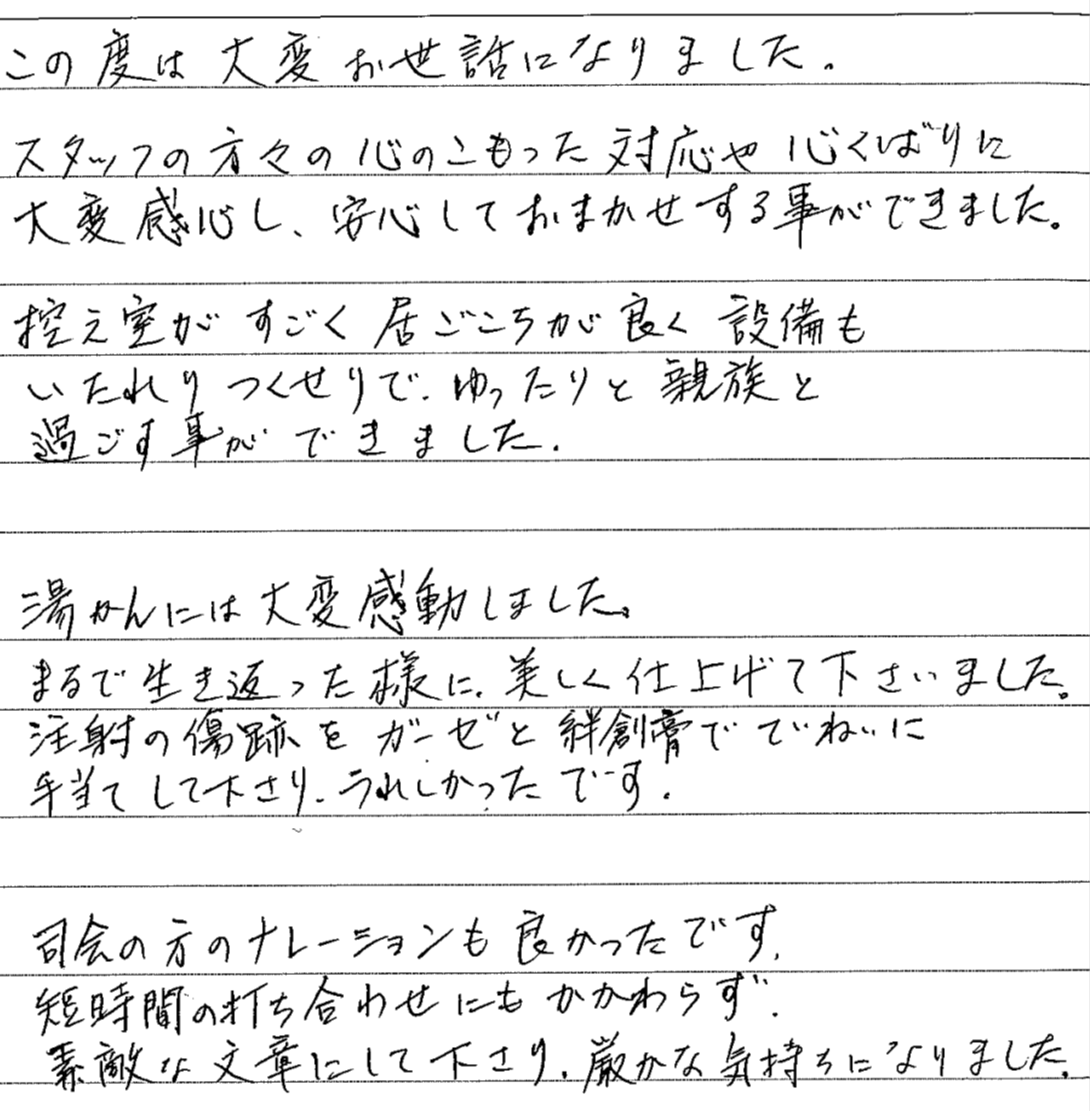 この度は大変お世話になりました。
スタッフの方々の心のこもった対応や心くばりに
大変感心し、安心しておまかせする事ができました。
控え室がすごく居ごこちが良く設備も
いたれりつくせりで、ゆったりと親族と
過ごす事ができました。
湯かんには大変感動しました。
まるで生き返った様に、美しく仕上げて下さいました。
注射の傷跡をガーゼと絆創膏でていねいに
手当てして下さり、うれしかったです。
司会の方のナレーションも良かったです。
短時間の打ち合わせにもかかわらず、
素敵な文章にして下さり、厳かな気持ちになりました。